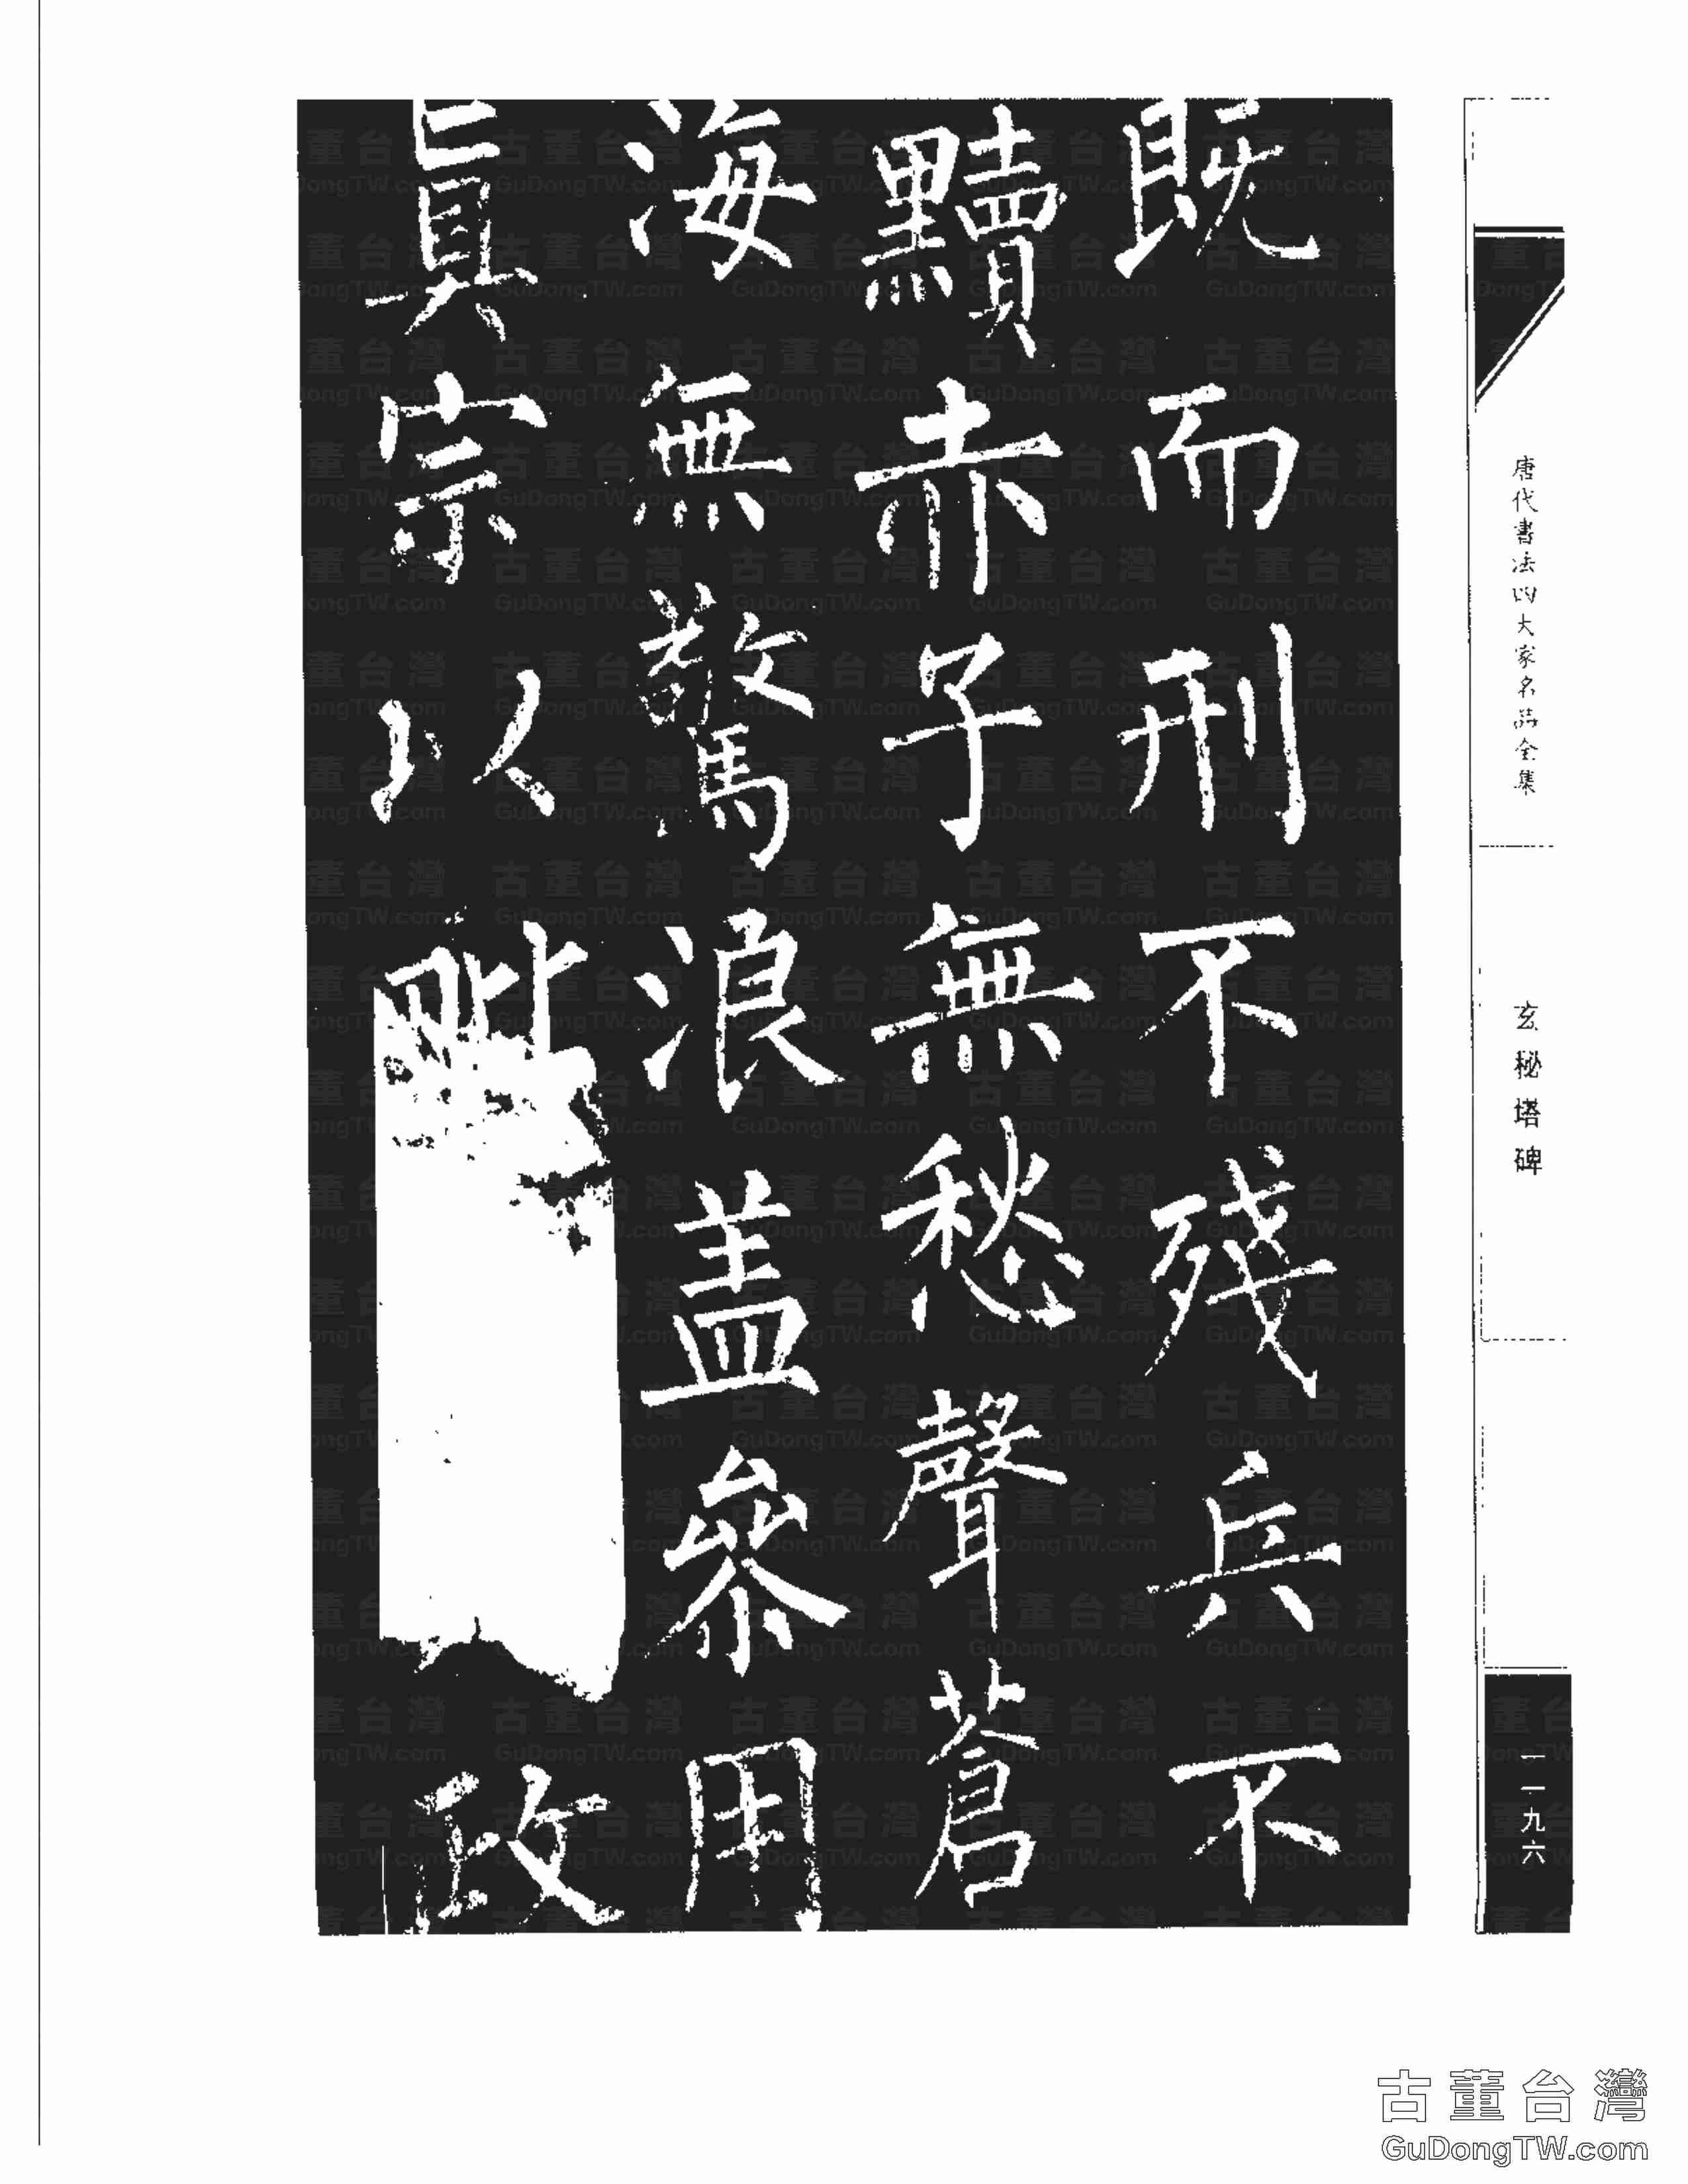 既而刑不殘兵不
黷赤子無愁聲蒼
海無驚浪盖参用
真宗以毗政
唐代書法四大家名品全集
玄秘塔碑
一一九六
古董台灣
GuDongTW.com